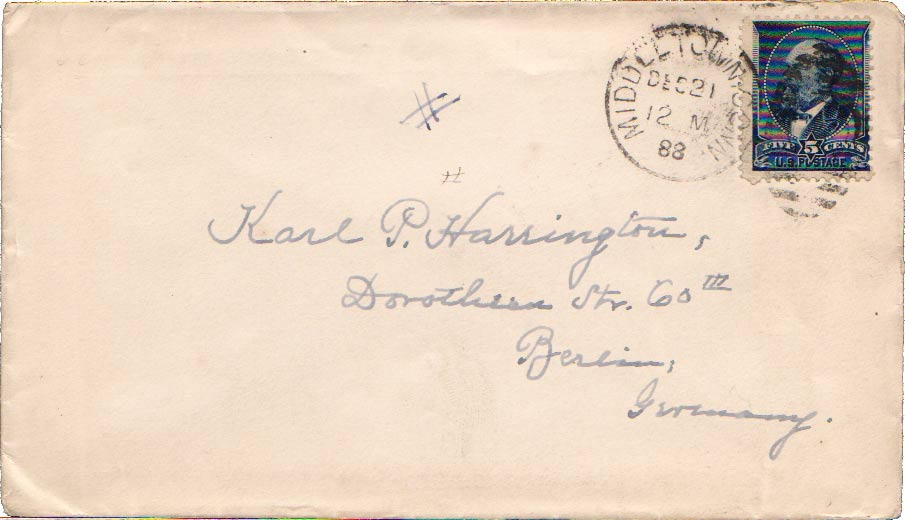 MIDDLETOWN CONN
DEC 21
12 M
88
FIVE 5 CENTS
U.S. POSTAGE
#
#
Karl P. Harrington,
Dorotheen Str. 60 III
Berlin,
Germany.